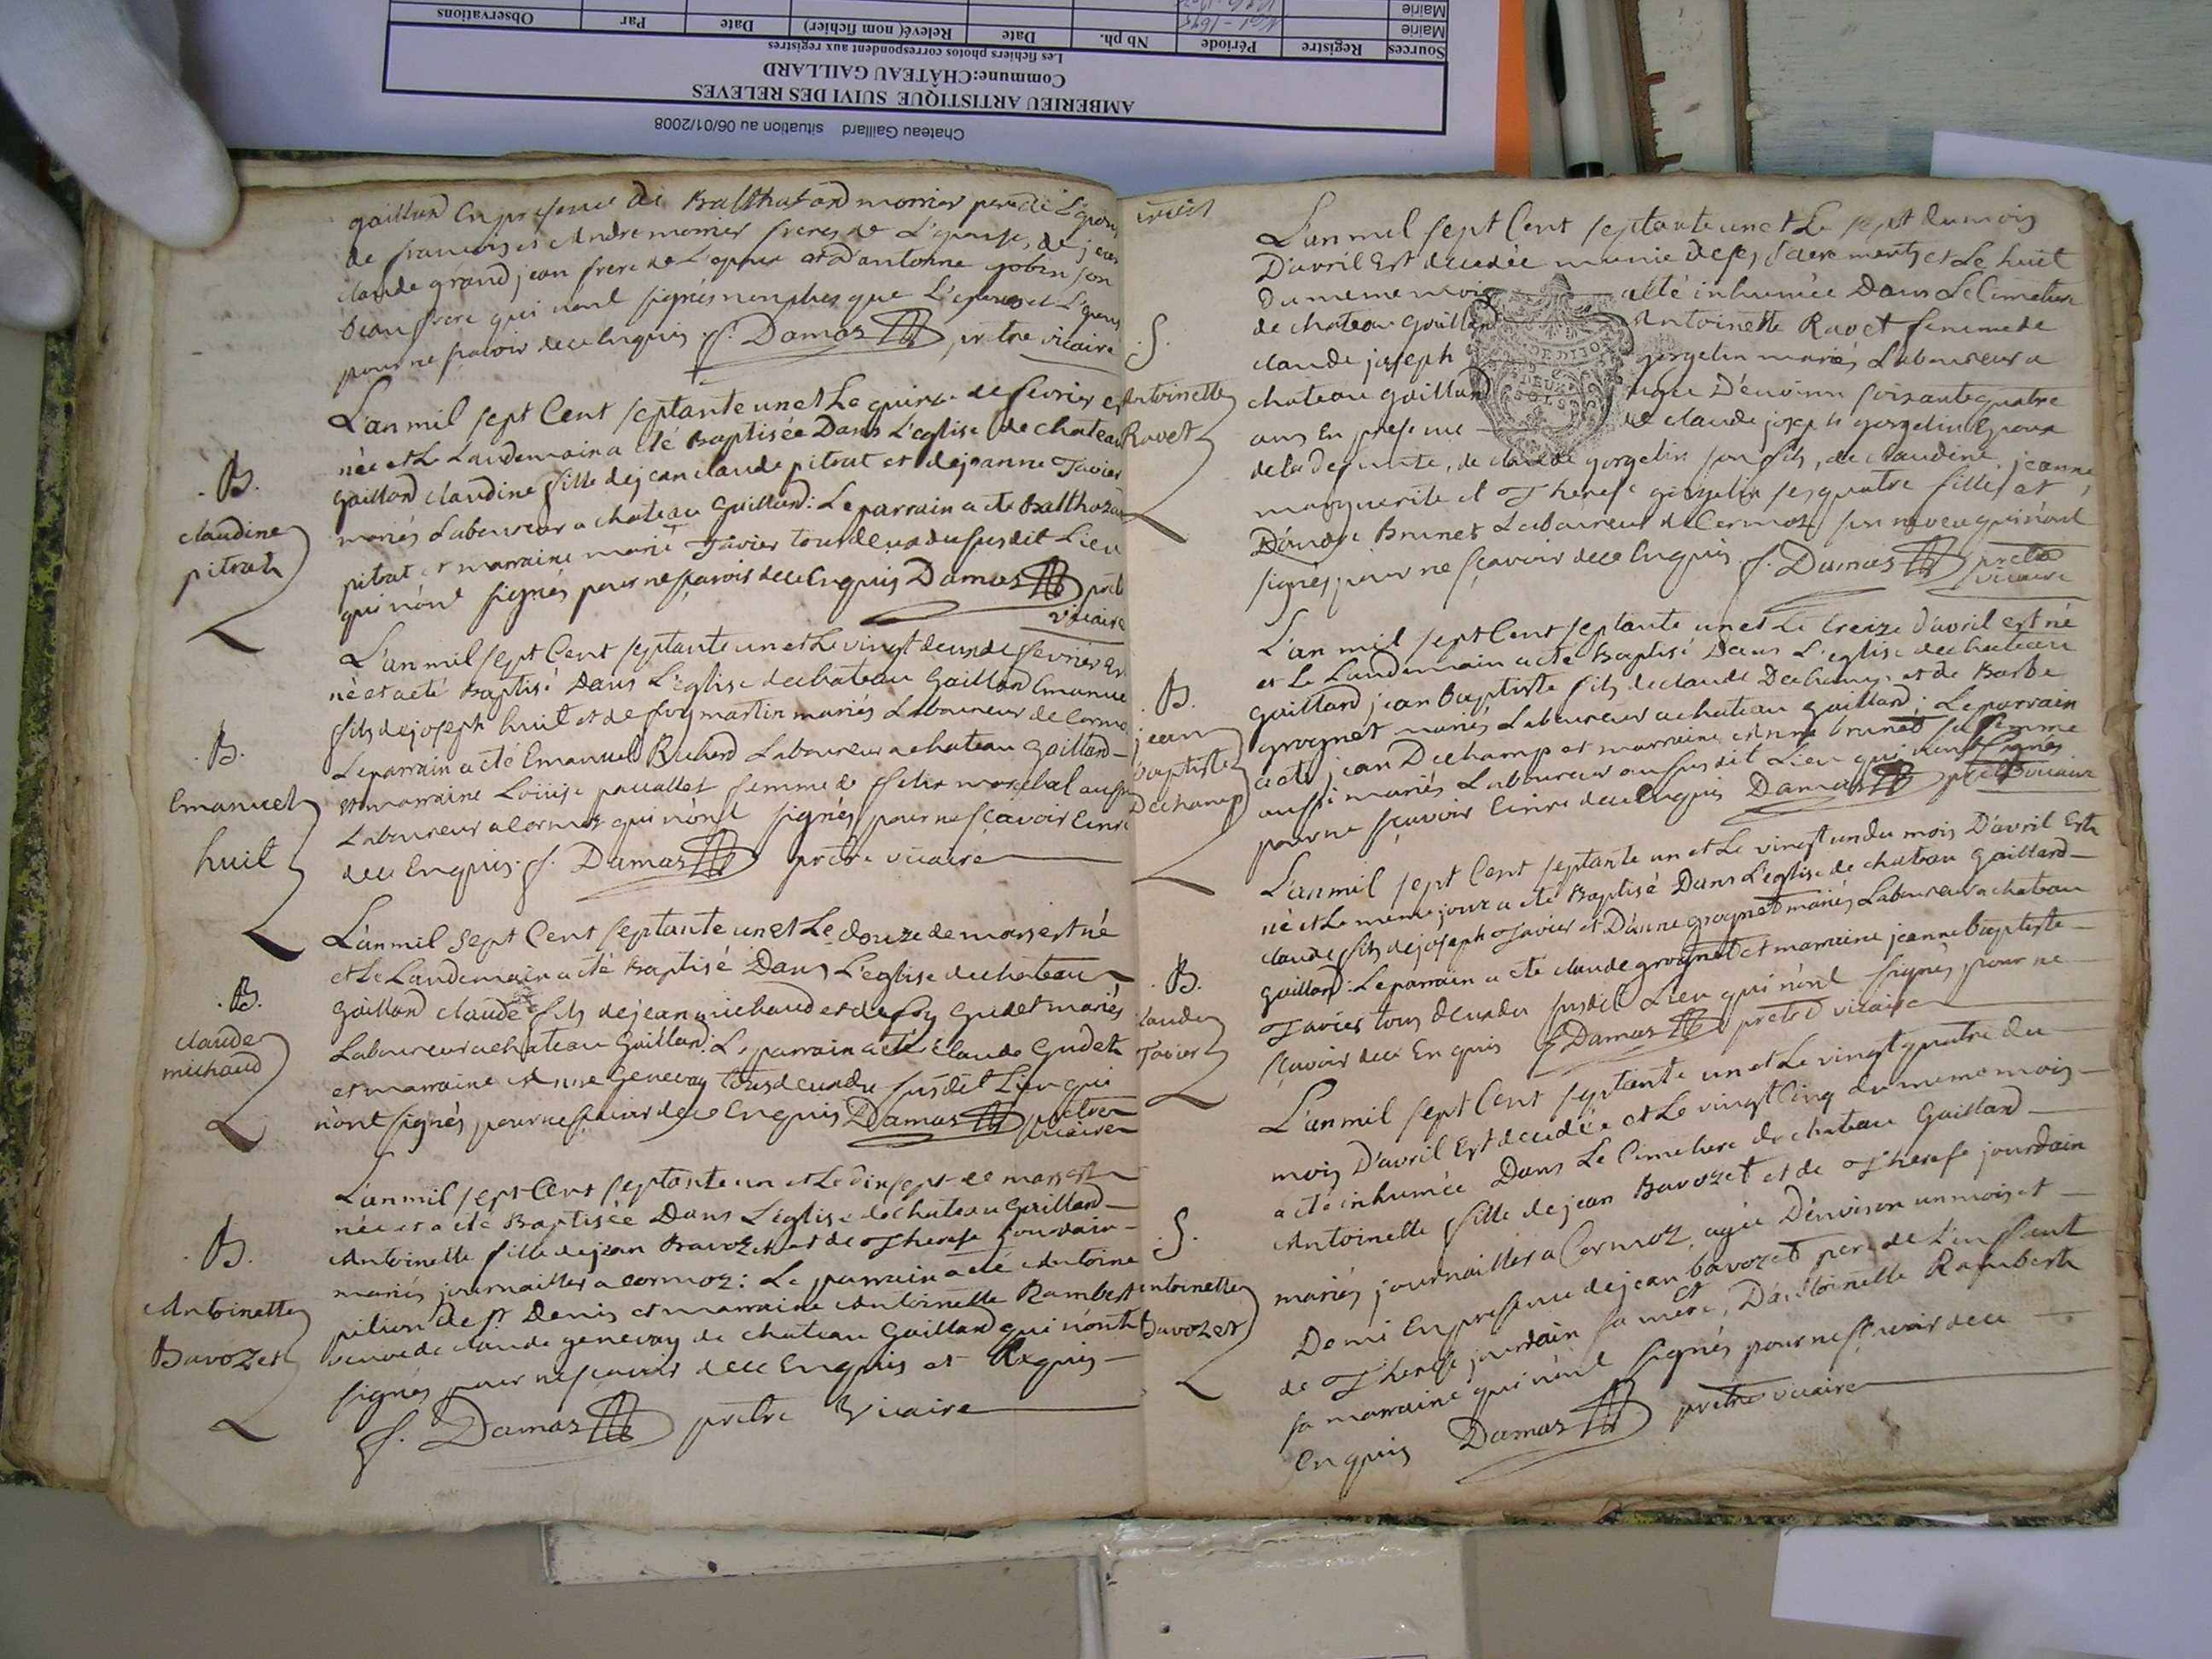 Chateau Gaillard situation au 06/01/2008
AMBERIEU ARTISTIQUE SUIVI DES RELEVES
Commune:CHÂTEAU GAILLARD
Les fichiers photos correspondent aux registres
Sources Registre Période Nb ph. Date Relevé( nom fichier) Date Par Observations
Mairie
Mairie
gaillard En presence de Balthazard monier pere de L'epouse
de francois et Andre monier freres de L'epouse, de jean
claude grand jean frere de L'epoux et d'antoine gobin son
beau frere qui n'ont signés non plus que L'epoux et L'epouse
pour ne scavoir de ce Enquis f. Damas prtre vicaire
.B.
claudine
pitrat
L'an mil sept Cent septante un et Le quinze de fevrier est
née et Le Landemain a été Baptisée Dans L'eglise de chateau
gaillard claudine fille de jean claude pitrat et de jeanne Tavier
mariés Laboureur a chateau gaillard: Le parrain a été Balthazar
pitrat et marraine marie Tavier tous deux du susdit Lieu
qui n'ont signés pour ne sçavoir de ce Enquis Damas prtre
vicaire
.B.
Emanuel
huit
L'an mil sept Cent septante un et Le vingt deux de fevrier est
né et a eté Baptisé Dans L'eglise de chateau gaillard Emanuel
fils de joseph huit et de foy martin mariés Laboureur de Cormoz
Le parrain a eté Emanuel Richard Laboureur a chateau Gaillard
et marraine Loüise femme de felix marechal aussi
Laboureur a Cormoz qui n'ont signés pour ne sçavoir Ecrire
de ce Enquis f. Damas prêtre vicaire
.B.
claude
michaud
L'an mil sept Cent septante un et Le douze de mars est né
et Le Landemain a été Baptisé Dans L'eglise de chateau
gaillard claude fils de jean michaud et de foy Gudet mariés
Laboureur a chateau Gaillard: Le parrain a été claude Gudet
et marraine Anne Genevay tous deux du susdit Lieu qui
n'ont signés pour ne scavoir de ce Enquis Damas prêtre
vicaire
.B.
Antoinette
Bavozet
L'an mil sept Cent septante un et Le dix sept de mars est
née et a été Baptisée Dans L'eglise de chateau Gaillard
Antoinette fille de jean Bavozet et de Therese jourdain
mariés journaillier a cormoz: Le parrain a eté Antoine
pition de St Denis et marraine Antoinette Rambert
veuve de claude genevay de chateau Gaillard qui n'ont
signés pour ne scavoir de ce Enquis et Requis
f. Damas prêtre Vicaire
.S.
Antoinette
Ravet
L'an mil sept Cent septante un et Le sept du mois
D'avril Est decedée munie de ses sacrements et Le huit
du meme mois a été inhumée Dans Le Cimetiere
de chateau Gaillard Antoinette Ravet femme de
claude joseph gorgelin mariés Laboureur a
chateau gaillard agée D'environ soixante quatre
ans En presence de claude joseph gorgelin Epoux
de la defunte, de claude gorgelin son fils, de claudine, jeanne,
marguerite et Therese gorgelin ses quatre filles et
D'andre Brunet Laboureur de Cormoz son neveu qui n'ont
signés pour ne sçavoir de ce Enquis f. Damas prêtre
vicaire
DE DIJON
DEUX
SOLS
.B.
jean
baptiste
Dechamp
L'an mil sept Cent septante un et Le treize d'avril est né
et Le Landemain a eté Baptisé Dans L'eglise de chateau
gaillard jean Baptiste fils de claude Dechamp et de Barbe
grognet mariés Laboureur a chateau gaillard; Le parrain
a eté jean Dechamp et marraine Anne brunet sa femme
aussi mariés Laboureur au susdit Lieu qui n'ont signés
pour ne sçavoir Ecrire de ce Enquis Damas prêtre Vicaire
.B.
claude
Tavier
L'an mil sept Cent septante un et Le vingt un du mois D'avril Est
né et Le meme jour a eté Baptisé Dans L'eglise de chateau gaillard
claude fils de joseph Tavier et D'anne grognet mariés Laboureur a chateau
gaillard: Le parrain a eté claude grognet et marraine jeanne baptiste
Tavier tous deux du susdit Lieu qui n'ont signés pour ne
sçavoir de ce Enquis f Damas prêtre vicaire
.S.
Antoinette
Bavozet
L'an mil sept Cent septante un et Le vingt quatre du
mois D'avril Est decedée et Le vingt Cinq du meme mois
a eté inhumée Dans Le Cimetiere de chateau Gaillard
Antoinette fille de jean Bavozet et de Therese jourdain
mariés journaillier a Cormoz, agée D'environ un mois et
Demi En presence de jean bavozet pere de L'enfant
de Therese jourdain sa mere, D'antoinette Rambert
sa marraine qui n'ont signés pour ne sçavoir de ce
Enquis Damas prêtre vicaire